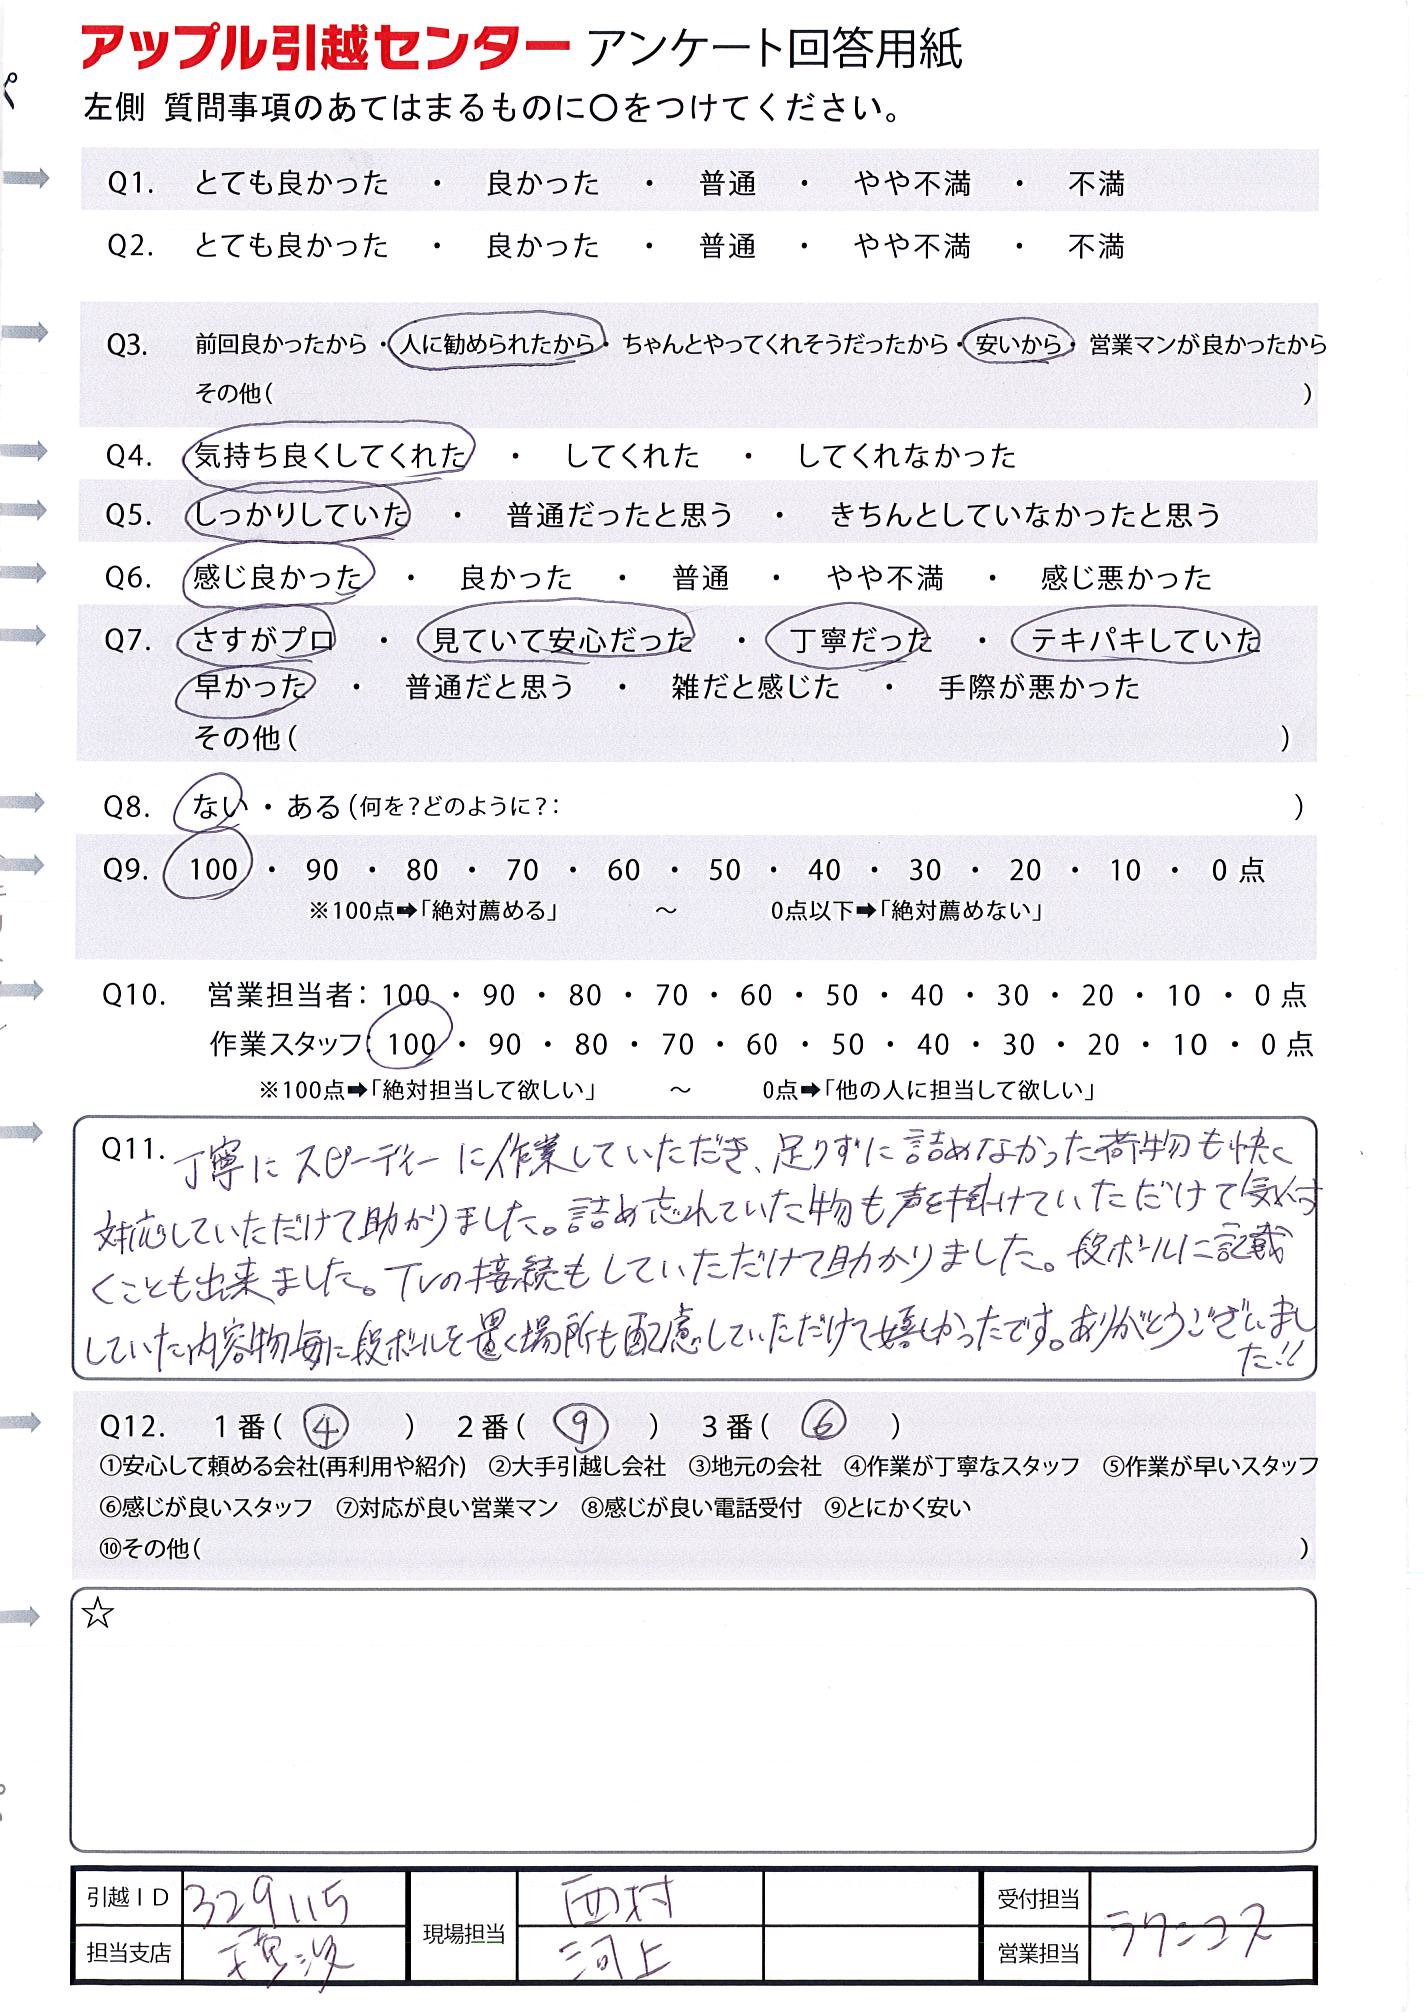 アップル引越センター アンケート回答用紙
左側 質問事項のあてはまるものに〇をつけてください。
Q1. とても良かった ・ 良かった ・ 普通 ・ やや不満 ・ 不満
Q2. とても良かった ・ 良かった ・ 普通 ・ やや不満 ・ 不満
Q3. 前回良かったから・人に勧められたから・ちゃんとやってくれそうだったから・安いから・営業マンが良かったから
その他( )
Q4. 気持ち良くしてくれた ・ してくれた ・ してくれなかった
Q5. しっかりしていた ・ 普通だったと思う ・ きちんとしていなかったと思う
Q6. 感じ良かった ・ 良かった ・ 普通 ・ やや不満 ・ 感じ悪かった
Q7. さすがプロ ・ 見ていて安心だった ・ 丁寧だった ・ テキパキしていた
早かった ・ 普通だと思う ・ 雑だと感じた ・ 手際が悪かった
その他( )
Q8. ない・ある(何を?どのように?: )
Q9. 100 ・ 90 ・ 80 ・ 70 ・ 60 ・ 50 ・ 40 ・ 30 ・ 20 ・ 10 ・ 0 点
※100点➡「絶対薦める」 ～ 0点以下➡「絶対薦めない」
Q10. 営業担当者: 100 ・ 90 ・ 80 ・ 70 ・ 60 ・ 50 ・ 40 ・ 30 ・ 20 ・ 10 ・ 0 点
作業スタッフ: 100 ・ 90 ・ 80 ・ 70 ・ 60 ・ 50 ・ 40 ・ 30 ・ 20 ・ 10 ・ 0 点
※100点➡「絶対担当して欲しい」 ～ 0点➡「他の人に担当して欲しい」
Q11. 丁寧にスピーディーに作業していただき、足りずに詰めなかった荷物も快く
対応していただけて助かりました。詰め忘れていた物も声を掛けていただけて気付
くことも出来ました。TVの接続もしていただけて助かりました。段ボールに記載
していた内容物毎に段ボールを置く場所も配慮していただけて嬉しかったです。ありがとうございまし
た!!
Q12. 1番( ④ ) 2番( ⑨ ) 3番( ⑥ )
①安心して頼める会社(再利用や紹介) ②大手引越し会社 ③地元の会社 ④作業が丁寧なスタッフ ⑤作業が早いスタッフ
⑥感じが良いスタッフ ⑦対応が良い営業マン ⑧感じが良い電話受付 ⑨とにかく安い
⑩その他( )
☆
引越ID 329115 現場担当 西村 受付担当
担当支店 横浜 河上 営業担当 ラクニコス